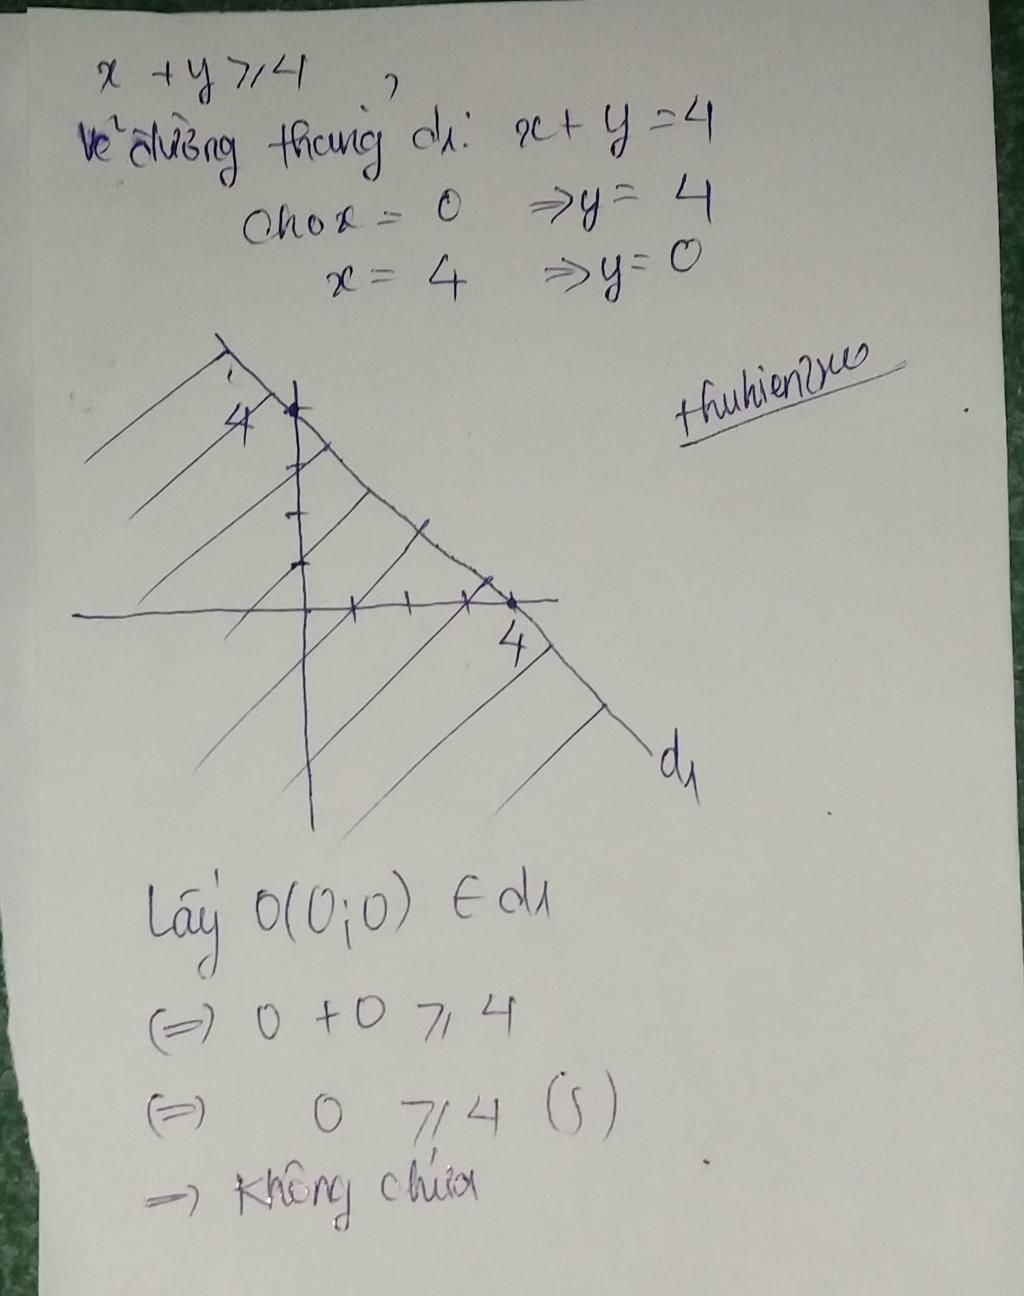 x + y ⩾ 4
Vẽ đường thẳng d1: x + y = 4
Cho x = 0 ⇒ y = 4
x = 4 ⇒ y = 0
4
4
d1
Lấy O(0;0) ∈ d1
(=) 0 + 0 ⩾ 4
(=) 0 ⩾ 4 (S)
=) Không chứa